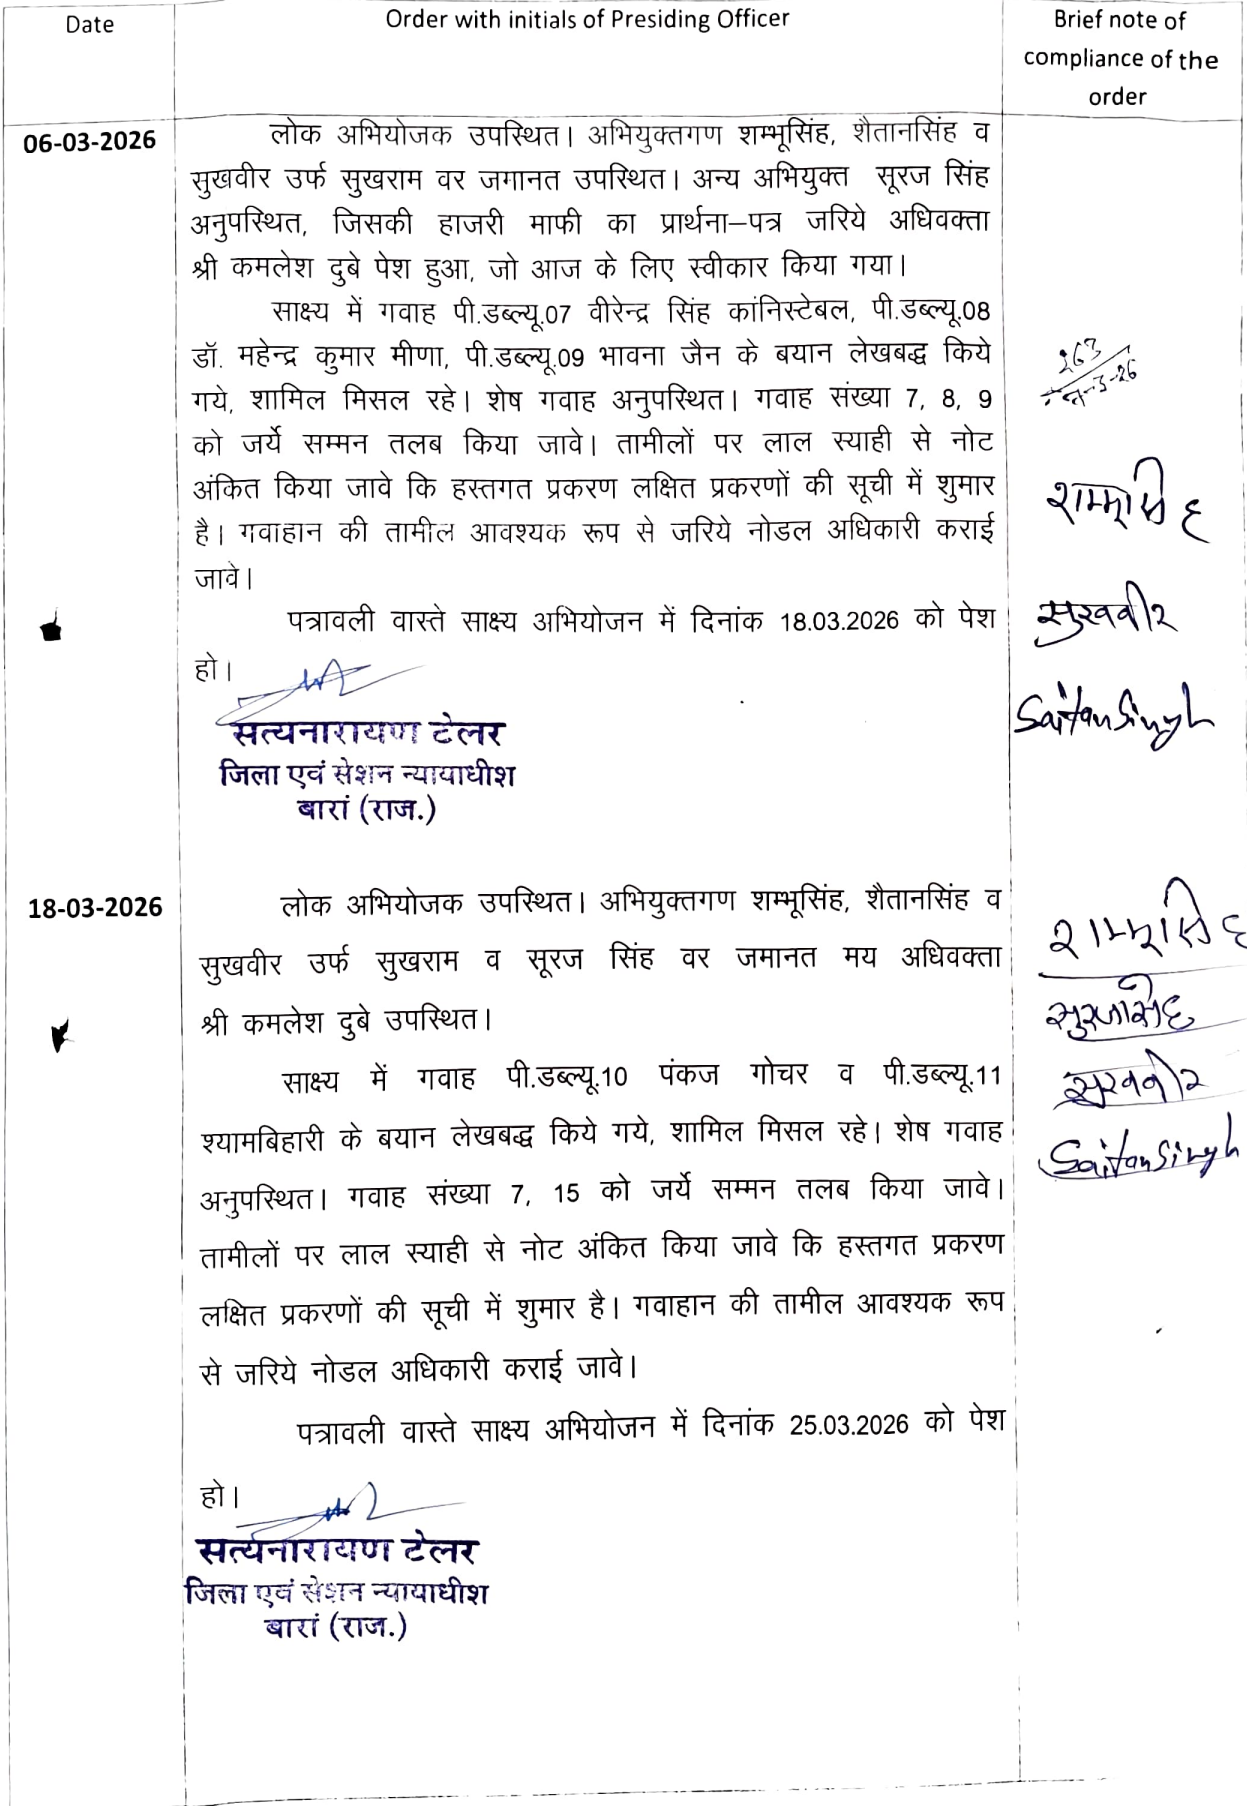 Date
Order with initials of Presiding Officer
Brief note of
compliance of the
order
06-03-2026
लोक अभियोजक उपस्थित। अभियुक्तगण शम्भूसिंह, शैतानसिंह व
सुखवीर उर्फ सुखराम वर जगानत उपस्थित। अन्य अभियुक्त सूरज सिंह
अनुपस्थित, जिसकी हाजरी माफी का प्रार्थना–पत्र जरिये अधिवक्ता
श्री कमलेश दुबे पेश हुआ, जो आज के लिए स्वीकार किया गया।
साक्ष्य में गवाह पी.डब्ल्यू.07 वीरेन्द्र सिंह कांनिस्टेबल, पी.डब्ल्यू.08
डॉ. महेन्द्र कुमार मीणा, पी.डब्ल्यू.09 भावना जैन के बयान लेखबद्ध किये
गये, शामिल मिसल रहे। शेष गवाह अनुपस्थित। गवाह संख्या 7, 8, 9
को जर्ये सम्मन तलब किया जावे। तामीलों पर लाल स्याही से नोट
अंकित किया जावे कि हस्तगत प्रकरण लक्षित प्रकरणों की सूची में शुमार
है। गवाहान की तामील आवश्यक रूप से जरिये नोडल अधिकारी कराई
जावे।
पत्रावली वास्ते साक्ष्य अभियोजन में दिनांक 18.03.2026 को पेश
हो।
सत्यनारायण टेलर
जिला एवं सेशन न्यायाधीश
बारां (राज.)
263
शम्भूसिंह
सुखवीर
Saitan Singh
18-03-2026
लोक अभियोजक उपस्थित। अभियुक्तगण शम्भूसिंह, शैतानसिंह व
सुखवीर उर्फ सुखराम व सूरज सिंह वर जमानत मय अधिवक्ता
श्री कमलेश दुबे उपस्थित।
साक्ष्य में गवाह पी.डब्ल्यू.10 पंकज गोचर व पी.डब्ल्यू.11
श्यामबिहारी के बयान लेखबद्ध किये गये, शामिल मिसल रहे। शेष गवाह
अनुपस्थित। गवाह संख्या 7, 15 को जर्ये सम्मन तलब किया जावे।
तामीलों पर लाल स्याही से नोट अंकित किया जावे कि हस्तगत प्रकरण
लक्षित प्रकरणों की सूची में शुमार है। गवाहान की तामील आवश्यक रूप
से जरिये नोडल अधिकारी कराई जावे।
पत्रावली वास्ते साक्ष्य अभियोजन में दिनांक 25.03.2026 को पेश
हो।
सत्यनारायण टेलर
जिला एवं सेशन न्यायाधीश
बारां (राज.)
शम्भूसिंह
सुरजसिंह
सुखवीर
Saitan Singh